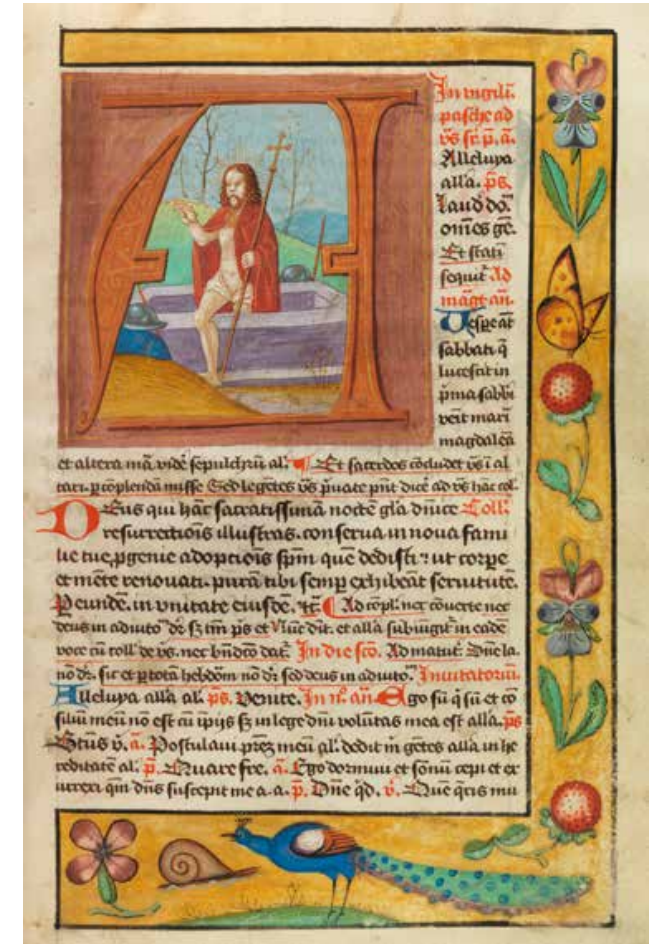 In vigili͞.
pasche ad
v͞s sr̄. p̄. a͞.
Alleluya
all'a. p͞s.
laud' do͞.
om͞es ge͞.
Et stati͞
sequit̄ Ad
mag͞t an͞.
Vesp̄e a͞t
sabbati q̄
lucescit in
p̄ma sabb̄i
ve͞it mari͞
magdale͞a
et altera ma͞. vide͞ sepulchru͞ al'. Et sacerdos co͞cludet v͞s i͞ al
tari. p̄ co͞plenda͞ misse Sed lege͞tes v͞s p̄uate p̄nt dice͞ ad v͞s ha͞c col'.
Deus qui ha͞c sacratissima͞ nocte͞ gl'a d͞nice Coll'.
resurrectio͞is illustras. conserua in noua fami
lie tue, p̄genie adoptio͞is sp͞m que͞ dedisti: ut corp̄e
et me͞te renouati. pura͞ tibi semp̄ exhibeant seruitute͞.
P eunde͞. in vnitate eiusde͞. ⁊c͞. Ad co͞pl'. nec co͞uerte nec
deus in adiuto͞ d͞r s͞z t͞m p͞s et Nu͞c dit. et all'a subiu͞git̄ in eade͞
voce cu͞ coll' de v͞s. nec b͞ndco͞ dat̄. In die sco͞. Ad matut̄. D͞ne la.
no͞ d͞r. sic et p̄ tota͞ hebdom͞ no͞ d͞r sed deus in adiuto͞. Inuitatoriu͞.
Alleluya all'a al'. p͞s. Venite. In n͞o. an͞. Ego su͞ q̄ su͞ et co͞
siliu͞ meu͞ no͞ est cu͞ ip̄ijs s͞z in lege d͞ni volu͞tas mea est all'a. p͞s
B͞tus v̄. a͞. Postulaui pr͞em meu͞ al'. dedit m̄ ge͞tes all'a in he
reditate͞ al'. p̄. Quare fre. a͞. Ego dormiui et so͞nu͞ cepi et ex
urrexi q͞m d͞ns suscepit me a. a. p̄. D͞ne q̄d. v̄. Que q̄ris mu